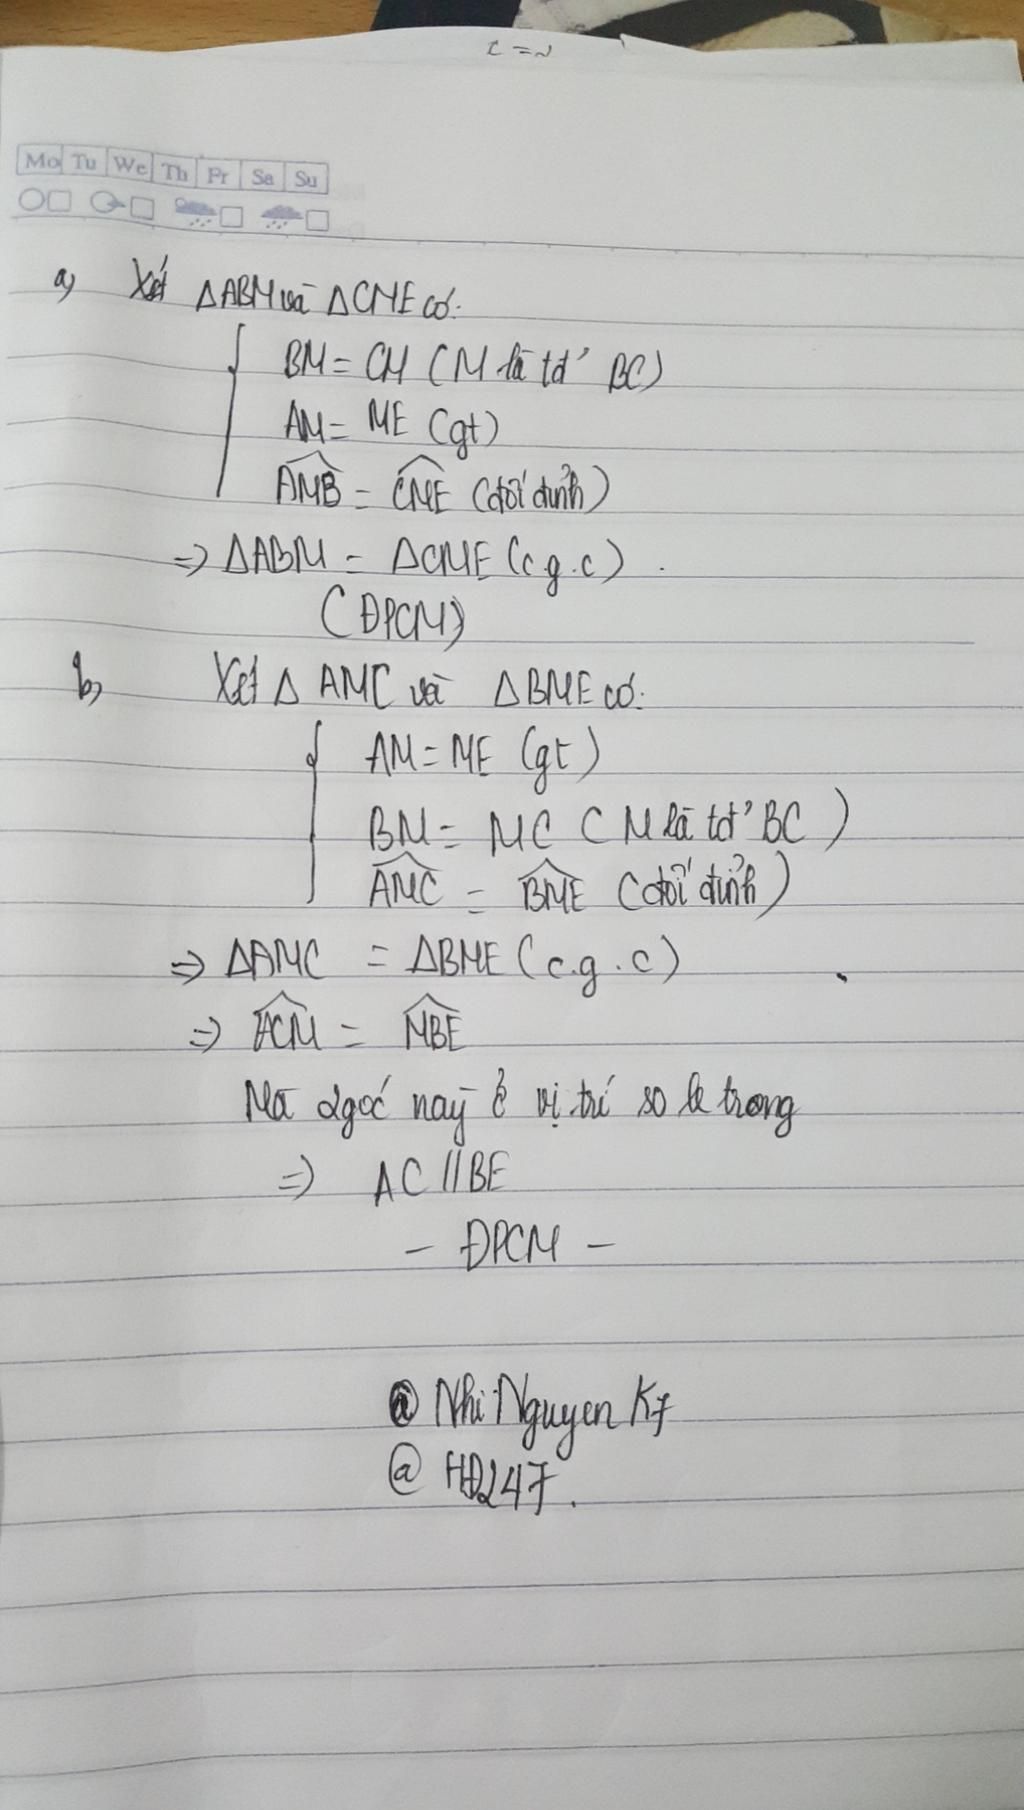 Mo Tu We Th Fr Sa Su
a, Xét ΔABM và ΔCME có:
BM = CM (M là tđ' BC)
AM = ME (gt)
∠AMB = ∠CME (đối đỉnh)
=> ΔABM = ΔCME (c.g.c).
(ĐPCM)
b, Xét Δ AMC và ΔBME có:
AM = ME (gt)
BM = MC (M là tđ' BC)
∠AMC = ∠BME (đối đỉnh)
=> ΔAMC = ΔBME (c.g.c)
=> ∠ACM = ∠MBE
Mà 2 góc này ở vị trí so le trong
=> AC // BE
- ĐPCM -
@ Nhi Nguyen K7
@ HĐ247.